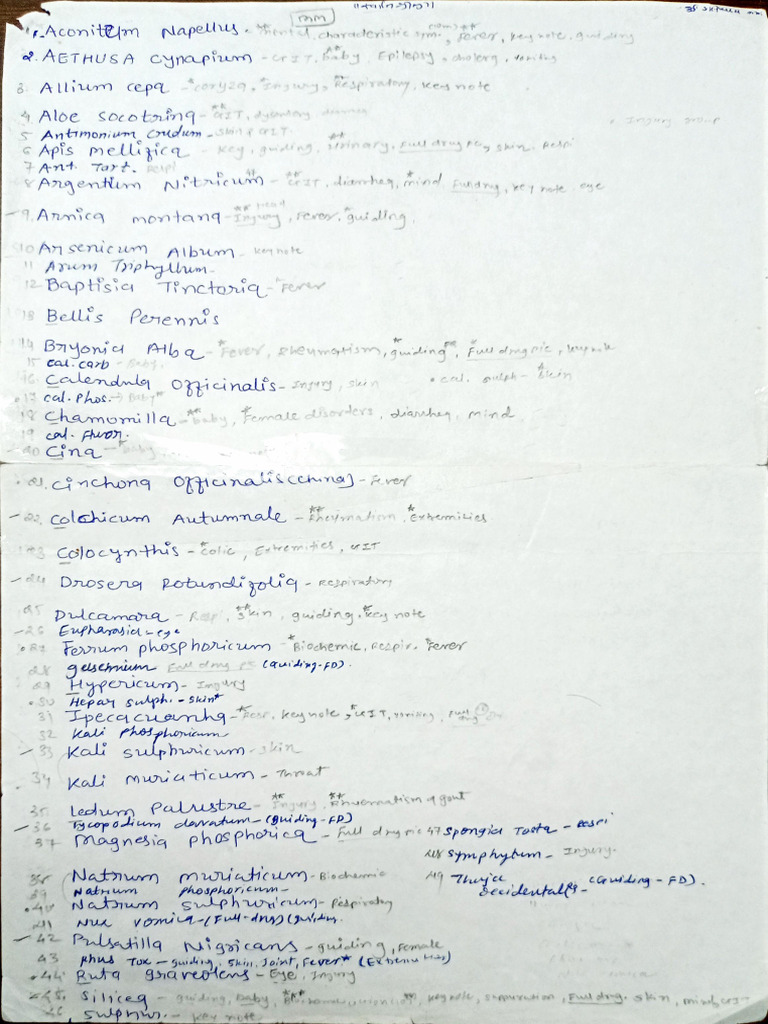 mm
1. Aconitum Napellus - mental, characteristic sym, Fever, key note, guiding
2. AETHUSA cynapium - GIT, baby, Epilepsy, cholera, vomiting
3. Allium cepa - *coryza, Injury, Respiratory, keynote
4. Aloe socotrina - **GIT, dysentery, diarrhea
Injury group
5 Antimonium Crudum - Skin & GIT.
6 Apis mellifica - key, guiding, **urinary, Full drug pic, skin, Respi
7 Ant. Tart. Respi
8 Argentium Nitricum - **GIT, diarrhea, *mind, Fundrug, key note eye
9. Arnica montana - Injury, Fever, guiding
10 Arsenicum Album - keynote
11 Arum Triphyllum -
12 Baptisia Tinctoria - Fever
13 Bellis Perennis
14 Bryonia Alba - *Fever, Rheumatism, *guiding, Full drug pic, keynote
15 Cal. Carb - Baby
16. Calendula Officinalis - Injury, skin
• cal. sulph - *skin
17 Cal. Phos. - Baby*
18 Chamomilla - **baby, *Female disorders, diarrhea, mind
19 cal. Fluor.
20 Cina - *baby
21. Cinchona Officinalis (China) - Fever
22. Colchicum Autumnale - **Rheumatism, *Extremities
23 Colocynthis - *colic, Extremities, GIT
24 Drosera Rotundifolia - Respiratory
25 Dulcamara - Respi, **skin, guiding, *key note
26 Euphrasia - eye
27 Ferrum phosphoricum - *Biochemic, Respir. *Fever
28 gelsemium Full drug pic (Guiding-FD).
29 Hypericum - Injury
30 Hepar sulph. - Skin*
31 Ipecacuanha - *Resp, keynote, *GIT, vomiting, Full drug
32 Kali Phosphoricum
33 Kali sulphuricum - skin
34 Kali muriaticum - Throat
35. Ledum Palustre - **Injury, **Rheumatism & gout
36 Lycopodium clavatum - (guiding-FD)
37 Magnesia phosphorica - Full drug pic
47 Spongia Tosta - Respi
48 Symphytum - Injury.
38 Natrum muriaticum - Biochemic
49 Thuja occidentalis - (Guiding-FD).
39 Natrum phosphoricum -
40 Natrum sulphuricum - Respiratory
41 Nux vomica - (Full-drug) (guiding
42 Pulsatilla Nigricans - guiding, Female
43 Rhus Tox - guiding, Skin, Joint, Fever* (Extremities)
44 Ruta graveolens - Eye, Injury
45. Silicea - guiding, baby, keynote, suppuration, Full drug, skin,
46 Sulphur. - key note